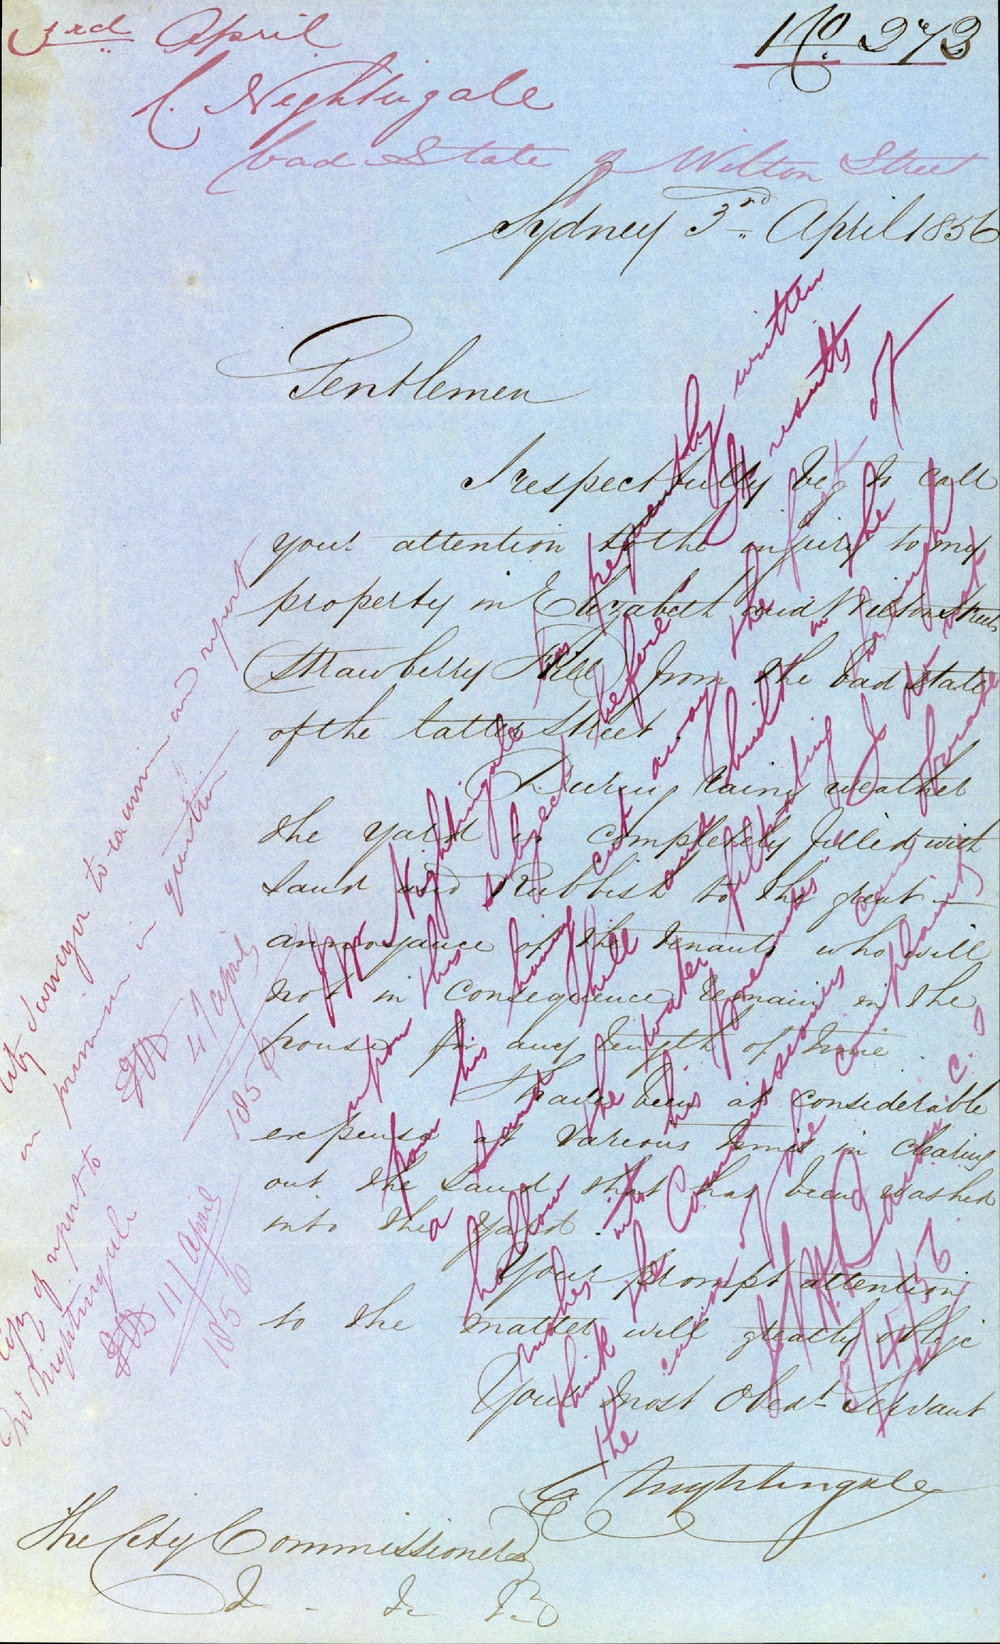 3rd April
No. 272
C. Nightingale
bad State of Wilton Street
Sydney 3rd April 1856
Gentlemen
I respectfully beg to call
your attention to the injury to my
property in Elizabeth and Wilton Streets
Strawberry Hill from the bad state
of the latter Street
During rainy weather
the yard is completely filled with
Sand and Rubbish to the great
annoyance of the tenants who will
not in consequence remain in the
house for any length of time.
I have been at considerable
expense at various times in clearing
out the Sand that has been washed
into the yard.
Your prompt attention
to the matter will greatly oblige
Your most Obedt Servant
C Nightingale
The City Commissioners
Mr Nightingale has frequently written
upon this subject before. It results
from his having cut away the foot of
a sand hill and built in the
hollow the water filtrating through
makes its into his premises. I do not
think the Commissioners can
the evil of the complaint
8/4/56
City Surveyor to examine and report
on premises in question
4/April
1856
Copy of report to
Mr Nightingale
11/April
1856